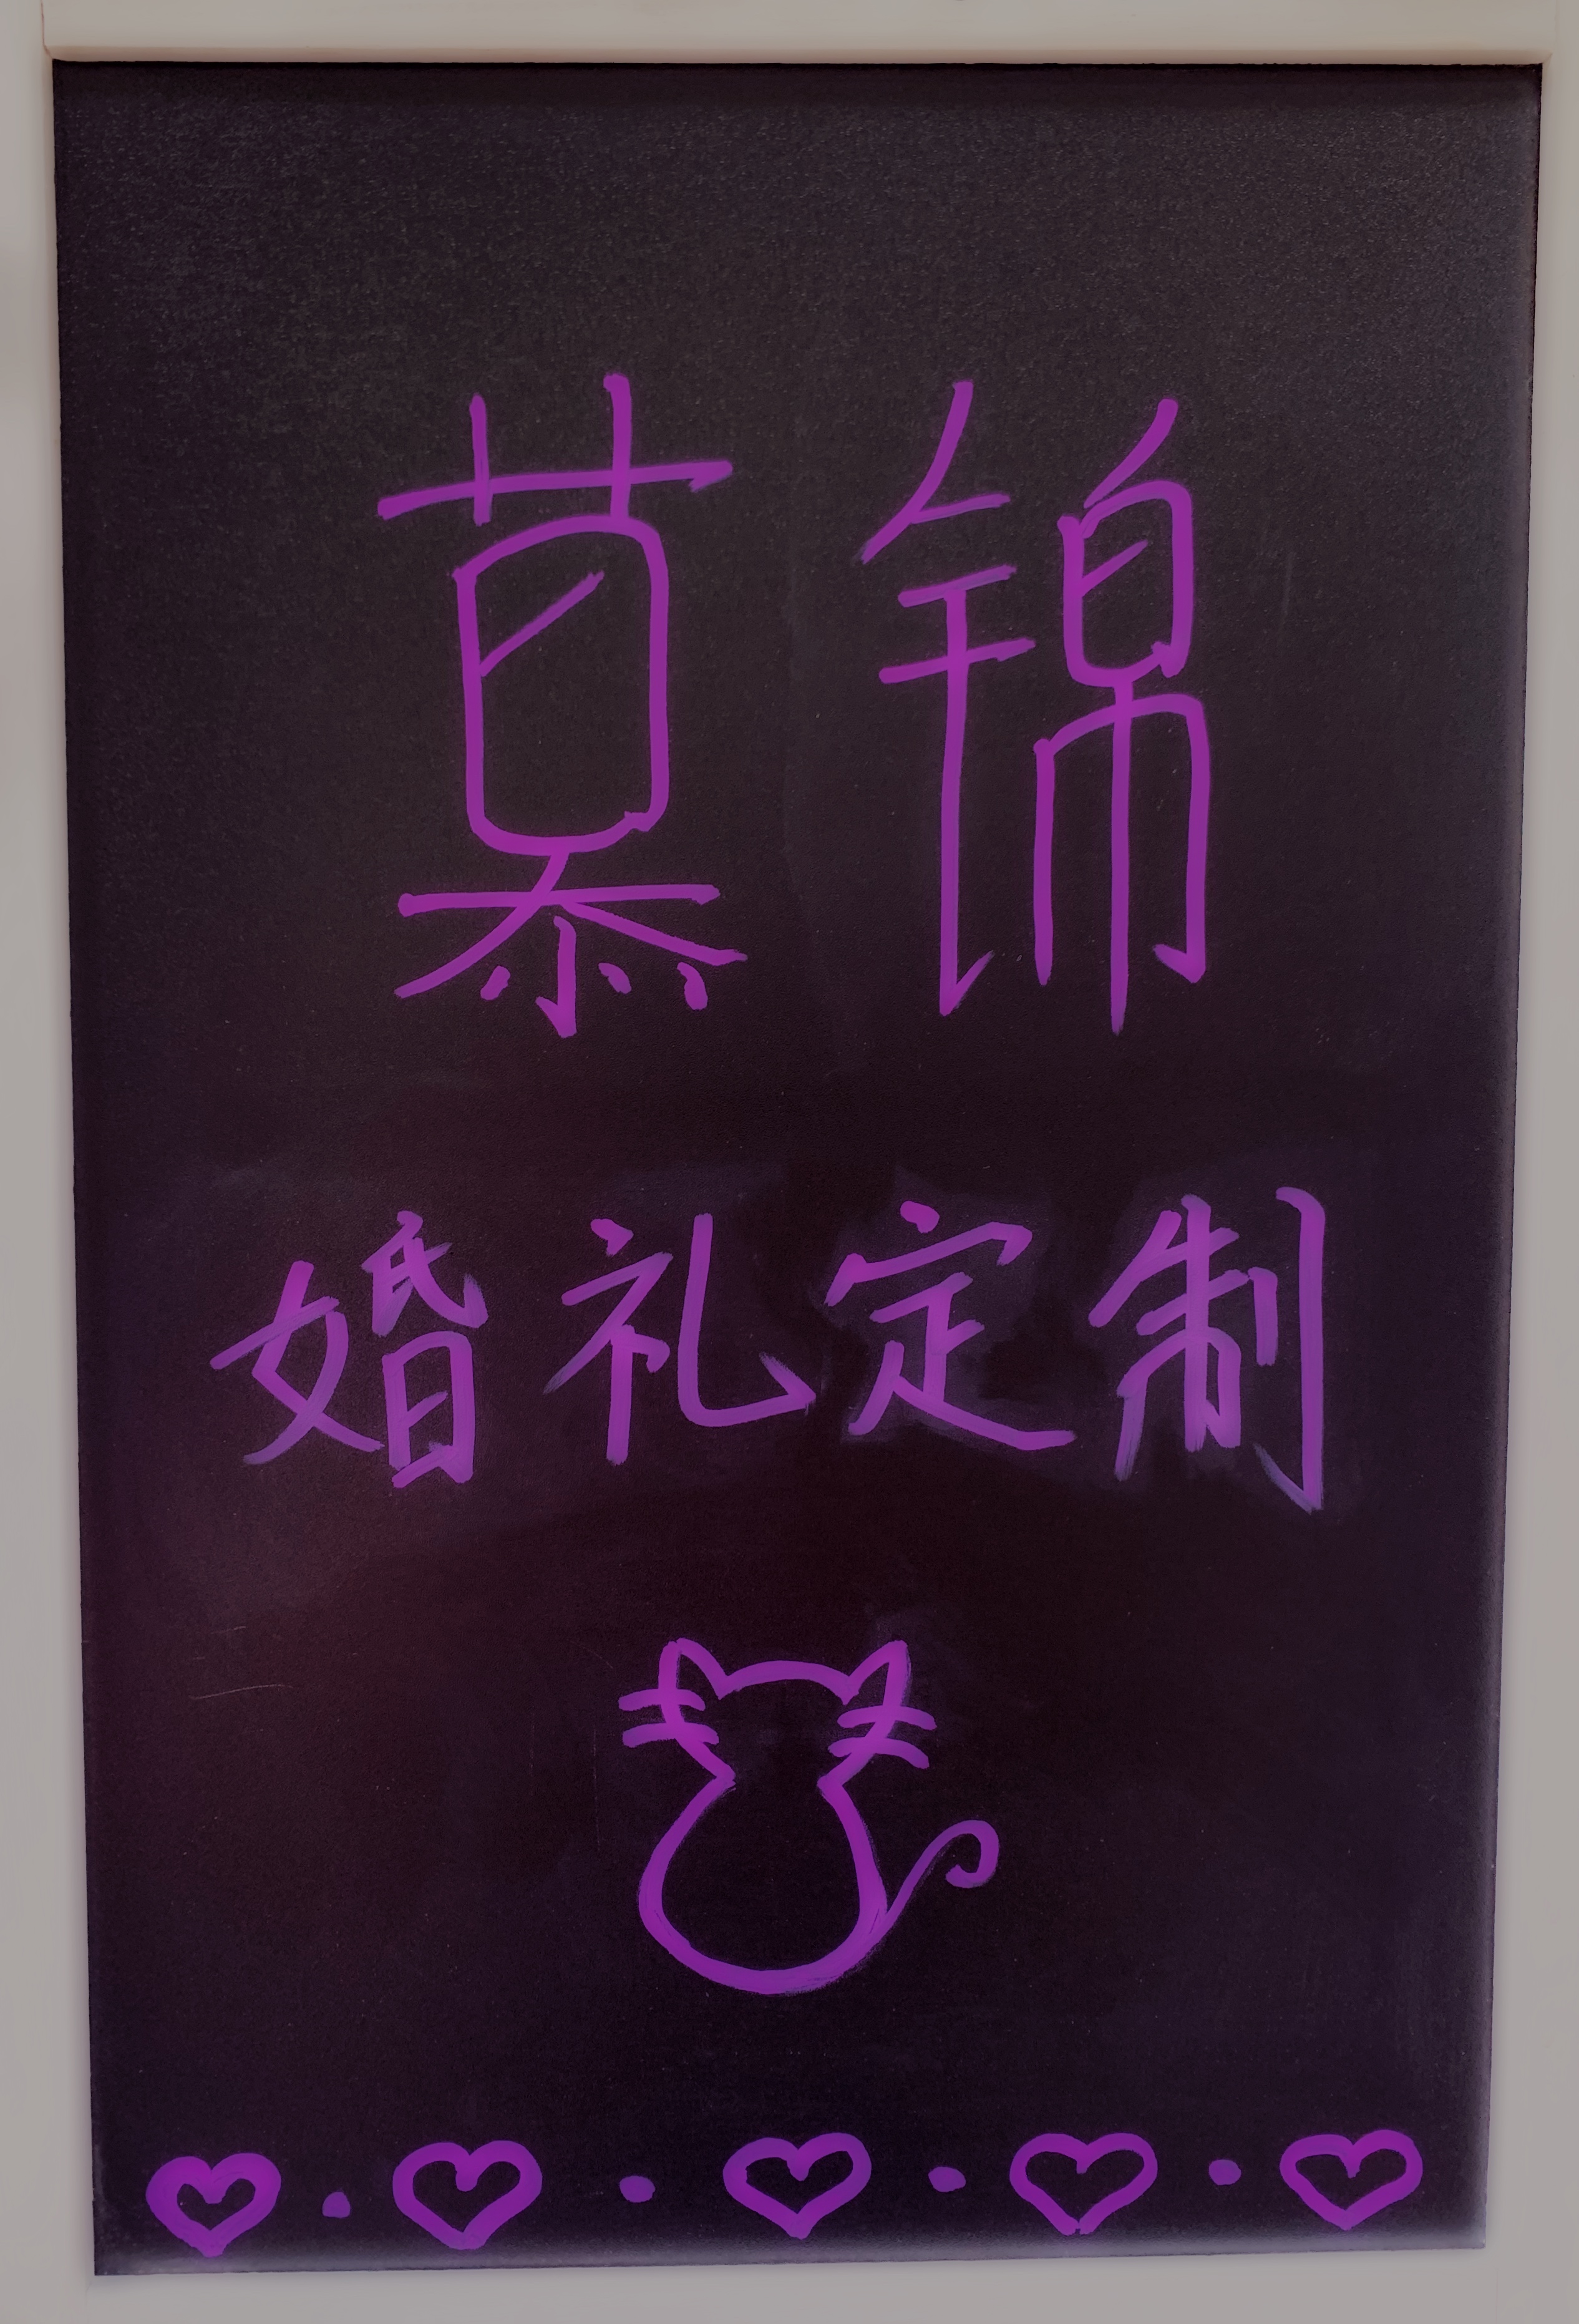 慕锦
婚礼定制